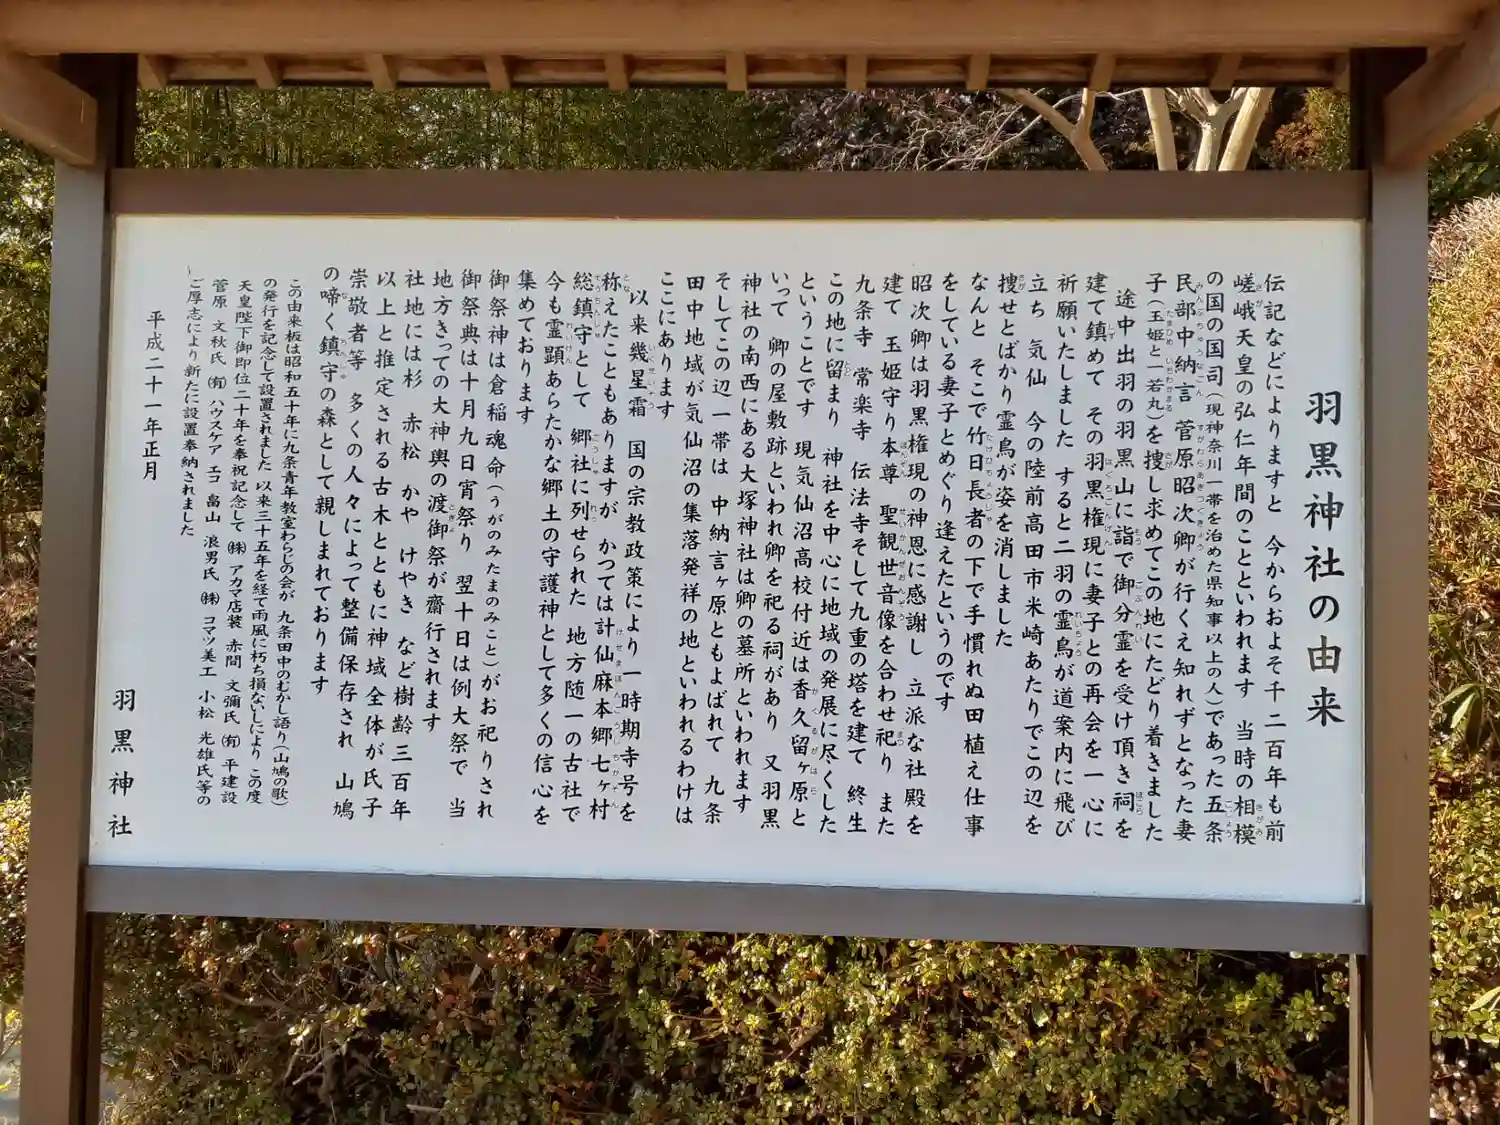 羽黒神社の由来
伝記などによりますと 今からおよそ千二百年も前
嵯峨天皇の弘仁年間のことといわれます 当時の相模
の国の国司(現神奈川一帯を治めた県知事以上の人)であった五条
民部中納言 菅原昭次卿が行くえ知れずとなった妻
子(玉姫と一若丸)を捜し求めてこの地にたどり着きました
途中出羽の羽黒山に詣で御分霊を受け頂き祠を
建て鎮めて その羽黒権現に妻子との再会を一心に
祈願いたしました すると二羽の霊鳥が道案内に飛び
立ち 気仙 今の陸前高田市米崎あたりでこの辺を
捜せとばかり霊鳥が姿を消しました
なんと そこで竹日長者の下で手慣れぬ田植え仕事
をしている妻子とめぐり逢えたというのです
昭次卿は羽黒権現の神恩に感謝し 立派な社殿を
建て 玉姫守り本尊 聖観世音像を合わせ祀り また
九条寺 常楽寺 伝法寺そして九重の塔を建て 終生
この地に留まり 神社を中心に地域の発展に尽くした
ということです 現気仙沼高校付近は香久留ヶ原と
いって 卿の屋敷跡といわれ卿を祀る祠があり 又羽黒
神社の南西にある大塚神社は卿の墓所といわれます
そしてこの辺一帯は 中納言ヶ原ともよばれて 九条
田中地域が気仙沼の集落発祥の地といわれるわけは
ここにあります
以来幾星霜 国の宗教政策により一時期寺号を
称えたこともありますが かつては計仙麻本郷七ヶ村
総鎮守として 郷社に列せられた 地方随一の古社で
今も霊顕あらたかな郷土の守護神として多くの信心を
集めております
御祭神は倉稲魂命(うがのみたまのみこと)がお祀りされ
御祭典は十月九日宵祭り 翌十日は例大祭で 当
地方きっての大神輿の渡御祭が齋行されます
社地には杉 赤松 かや けやき など樹齢三百年
以上と推定される古木とともに神域全体が氏子
崇敬者等 多くの人々によって整備保存され 山鳩
の啼く鎮守の森として親しまれております
この由来板は昭和五十年に九条青年教室わらじの会が 九条田中のむかし語り(山鳩の歌)
の発行を記念して設置されました 以来三十五年を経て雨風に朽ち損ないしにより この度
天皇陛下御即位二十年を奉祝記念して ㈱ アカマ店装 赤間 文彌氏 ㈲ 平建設
菅原 文秋氏 ㈲ ハウスケア エコ 畠山 浪男氏 ㈱ コマツ美工 小松 光雄氏等の
ご厚志により新たに設置奉納されました
平成二十一年正月
羽黒神社